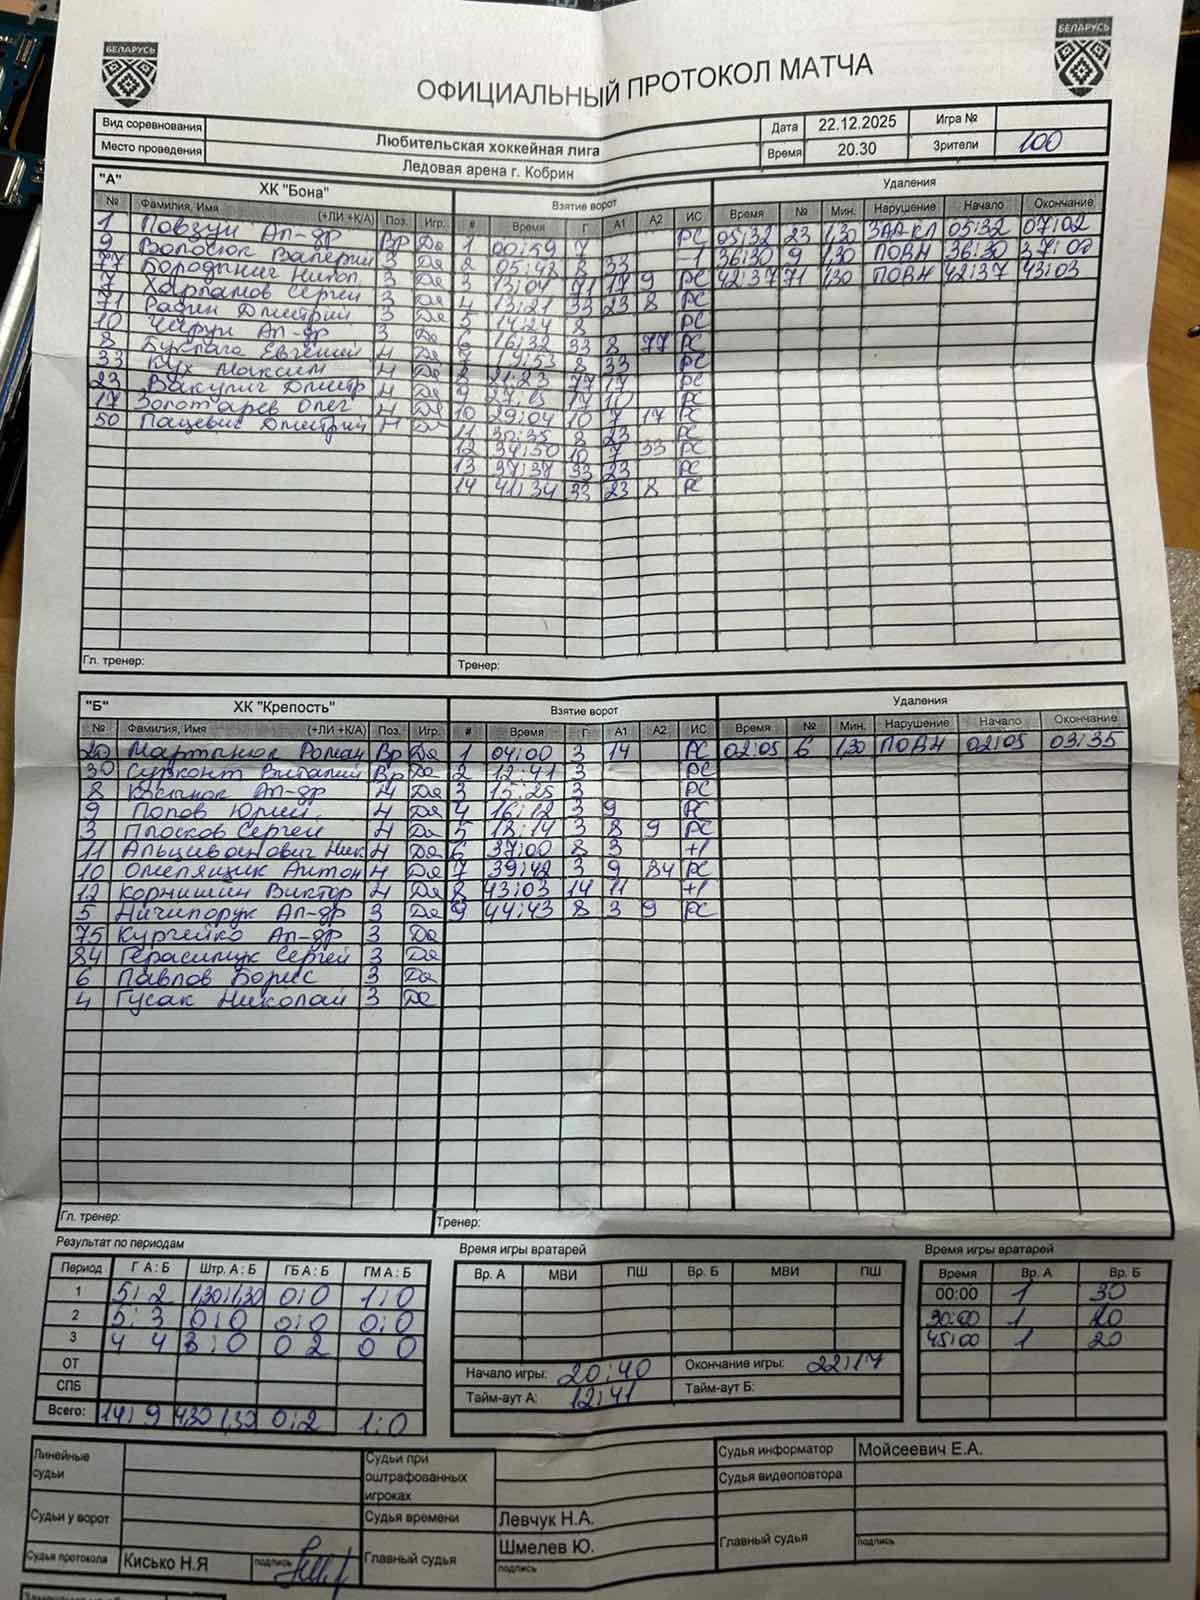 БЕЛАРУСЬ
БЕЛАРУСЬ
ОФИЦИАЛЬНЫЙ ПРОТОКОЛ МАТЧА
Вид соревнования Любительская хоккейная лига Дата 22.12.2025 Игра №
Место проведения Ледовая арена г. Кобрин Время 20.30 Зрители 100
"А" ХК "Бона" Взятие ворот Удаления
№ Фамилия, Имя (+ЛИ +К/А) Поз. Игр. # Время Г А1 А2 ИС Время № Мин. Нарушение Начало Окончание
1 Повзун Ал-др Вр Да 1 00:59 7 РС 05:32 23 1,30 ЗАД-КЛ 05:32 07:02
9 Волосюк Валерий З Да 2 05:48 8 33 -1 36:30 9 1,30 ПОДН 36:30 37:00
77 З Да 3 13:04 71 17 9 РС 42:37 71 1,30 ПОДН 42:37 43:03
7 Харламов Сергей З Да 4 13:21 33 23 8 РС
71 Дмитрий З Да 5 14:24 8 РС
10 Ал-др Да 6 16:32 33 8 77 РС
8 Евгений Н Да 7 19:53 8 33 РС
33 Кух Максим Н Да 8 21:23 77 17 РС
23 Вакулич Дмитр Н Да 9 17 10 РС
17 Золотарев Олег Н Да 10 29:04 10 7 17 РС
50 Пацевич Дмитрий Н Да 11 30:35 8 23 РС
12 34:50 10 7 33 РС
13 37:37 33 23 РС
14 41:34 33 23 8 РС
Гл. тренер: Тренер:
"Б" ХК "Крепость" Взятие ворот Удаления
№ Фамилия, Имя (+ЛИ +К/А) Поз. Игр. # Время Г А1 А2 ИС Время № Мин. Нарушение Начало Окончание
20 Мартынюк Роман Вр Да 1 04:00 3 14 РС 02:05 6 1,30 ПОДН 02:05 03:35
30 Сурконт Виталий Вр Да 2 12:41 3 РС
8 Ал-др Н Да 3 15:25 3 РС
9 Попов Юрий Н Да 4 16:12 3 9 РС
3 Плосков Сергей Н Да 5 18:14 3 8 9 РС
11 Альциванович Ник. Н Да 6 37:00 8 3 +1
10 Омелянщик Антон Н Да 7 39:42 3 9 84 РС
12 Корнишин Виктор Н Да 8 43:03 14 11 +1
5 Ничипорук Ал-др З Да 9 44:43 8 3 9 РС
75 Кургейко Ал-др З Да
84 Герасимук Сергей З Да
6 Павлов Борис З Да
4 Гусак Николай З Да
Гл. тренер: Тренер:
Результат по периодам Время игры вратарей Время игры вратарей
Период Г А : Б Штр. А : Б ГБ А : Б ГМ А : Б Вр. А МВИ ПШ Вр. Б МВИ ПШ Время Вр. А Вр. Б
1 5:2 1,30:1,30 0:0 1:0 00:00 1 30
2 5:3 0:0 0:0 0:0 30:00 1 20
3 4 4 3:0 0 2 0 0 45:00 1 20
ОТ
СПБ
Всего: 14:9 4,30 1,30 0:2 1:0
Начало игры: 20:40 Окончание игры: 22:17
Тайм-аут А: 12:41 Тайм-аут Б:
Линейные судьи Судьи при оштрафованных игроках Судья информатор Мойсеевич Е.А.
Судья видеоповтора
Судьи у ворот Судья времени Левчук Н.А.
Судья протокола Кисько Н.Я подпись Главный судья Шмелев Ю. подпись Главный судья подпись